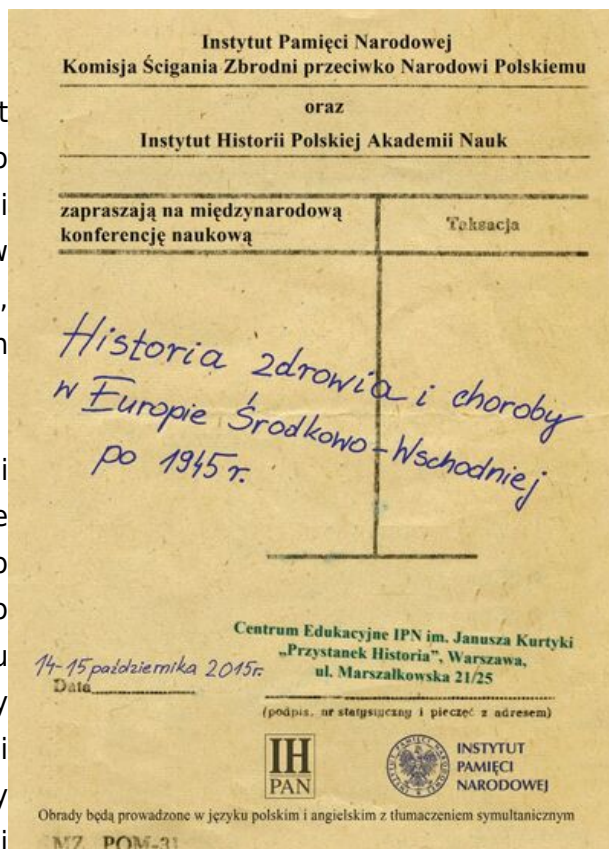 Instytut Pamięci Narodowej
Komisja Ścigania Zbrodni przeciwko Narodowi Polskiemu
oraz
Instytut Historii Polskiej Akademii Nauk
zapraszają na międzynarodową
konferencję naukową
Taksacja
Historia zdrowia i choroby
w Europie Środkowo-Wschodniej
po 1945 r.
Centrum Edukacyjne IPN im. Janusza Kurtyki
„Przystanek Historia”, Warszawa,
ul. Marszałkowska 21/25
14-15 października 2015r.
Data
(podpis, nr statystyczny i pieczęć z adresem)
IH
PAN
INSTYTUT
PAMIĘCI
NARODOWEJ
Obrady będą prowadzone w języku polskim i angielskim z tłumaczeniem symultanicznym
MZ POM-31